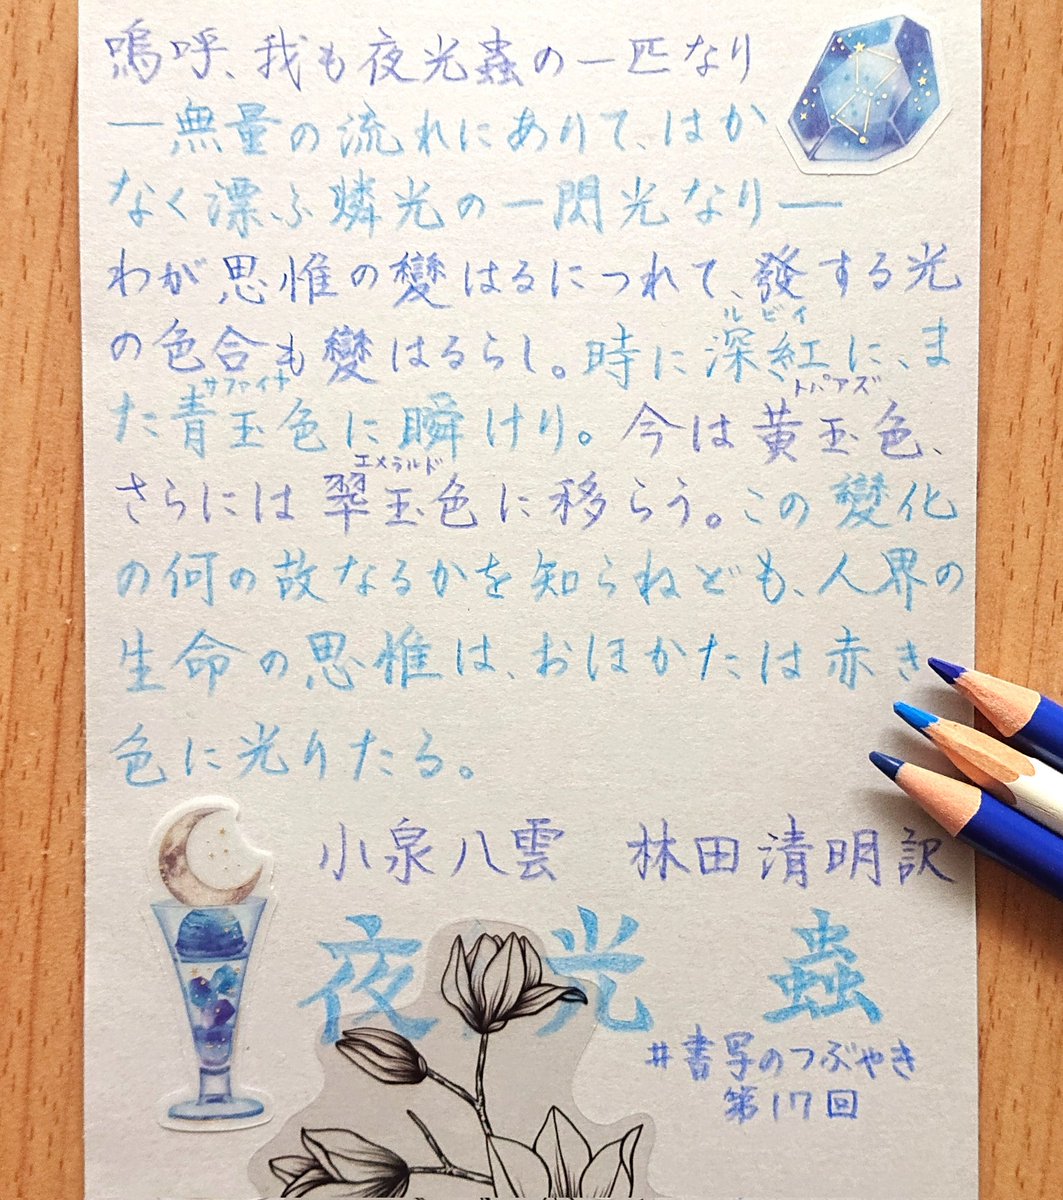 嗚呼、我も夜光蟲の一匹なり
―無量の流れにありて、はか
なく漂ふ燐光の一閃光なり―
わが思惟の變はるにつれて、發する光
の色合も變はるらし。時に深紅に、ま
ルビイ
た青玉色に瞬けり。今は黄玉色、
サファイヤ
トパアズ
さらには翠玉色に移らう。この變化
エメラルド
の何の故なるかを知らねども、人界の
生命の思惟は、おほかたは赤き
色に光りたる。
小泉八雲 林田清明訳
夜光蟲
#書写のつぶやき
第17回